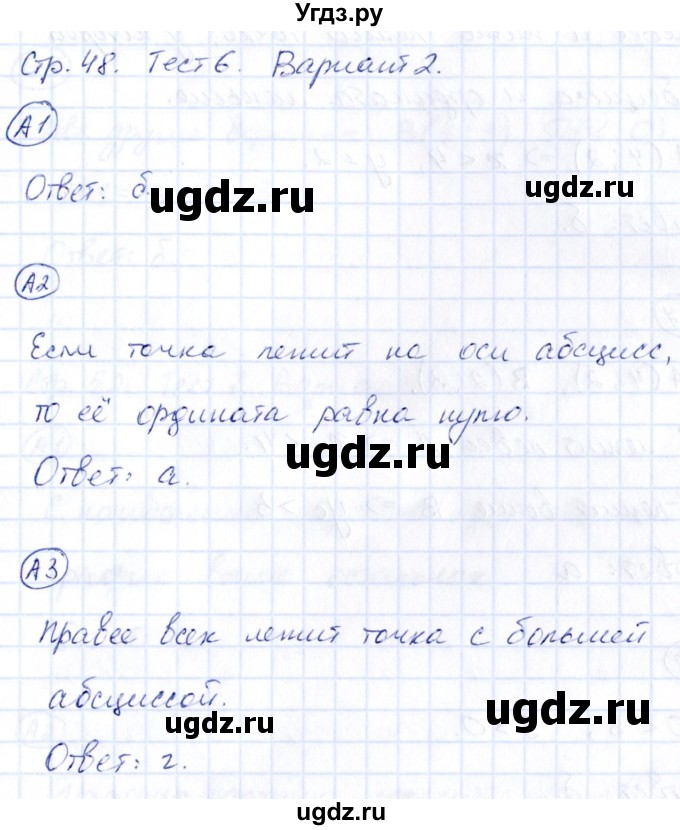 Угдз.ру
Стр. 48. Тест 6. Вариант 2.
А1
Ответ: б.
ugdz.ru
ugdz.ru
А2
Если точка лежит на оси абсцисс,
то её ордината равна нулю.
ugdz.ru
Ответ: а.
А3
Правее всех лежит точка с большей
абсциссой.
ugdz.ru
ugdz.ru
Ответ: г.
ugdz.ru